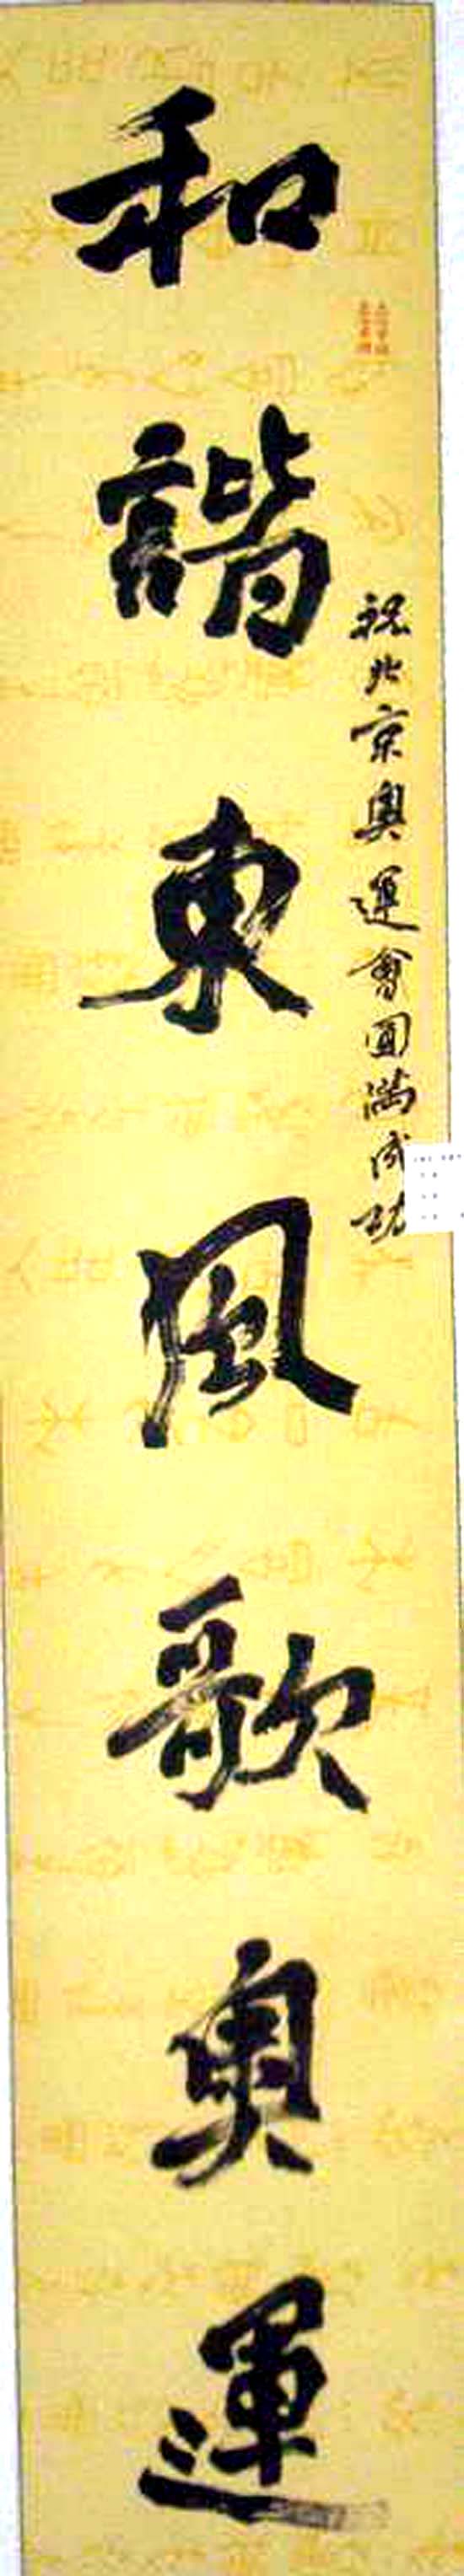 祝北京奥運會圓滿成功
和諧東風歌奥運